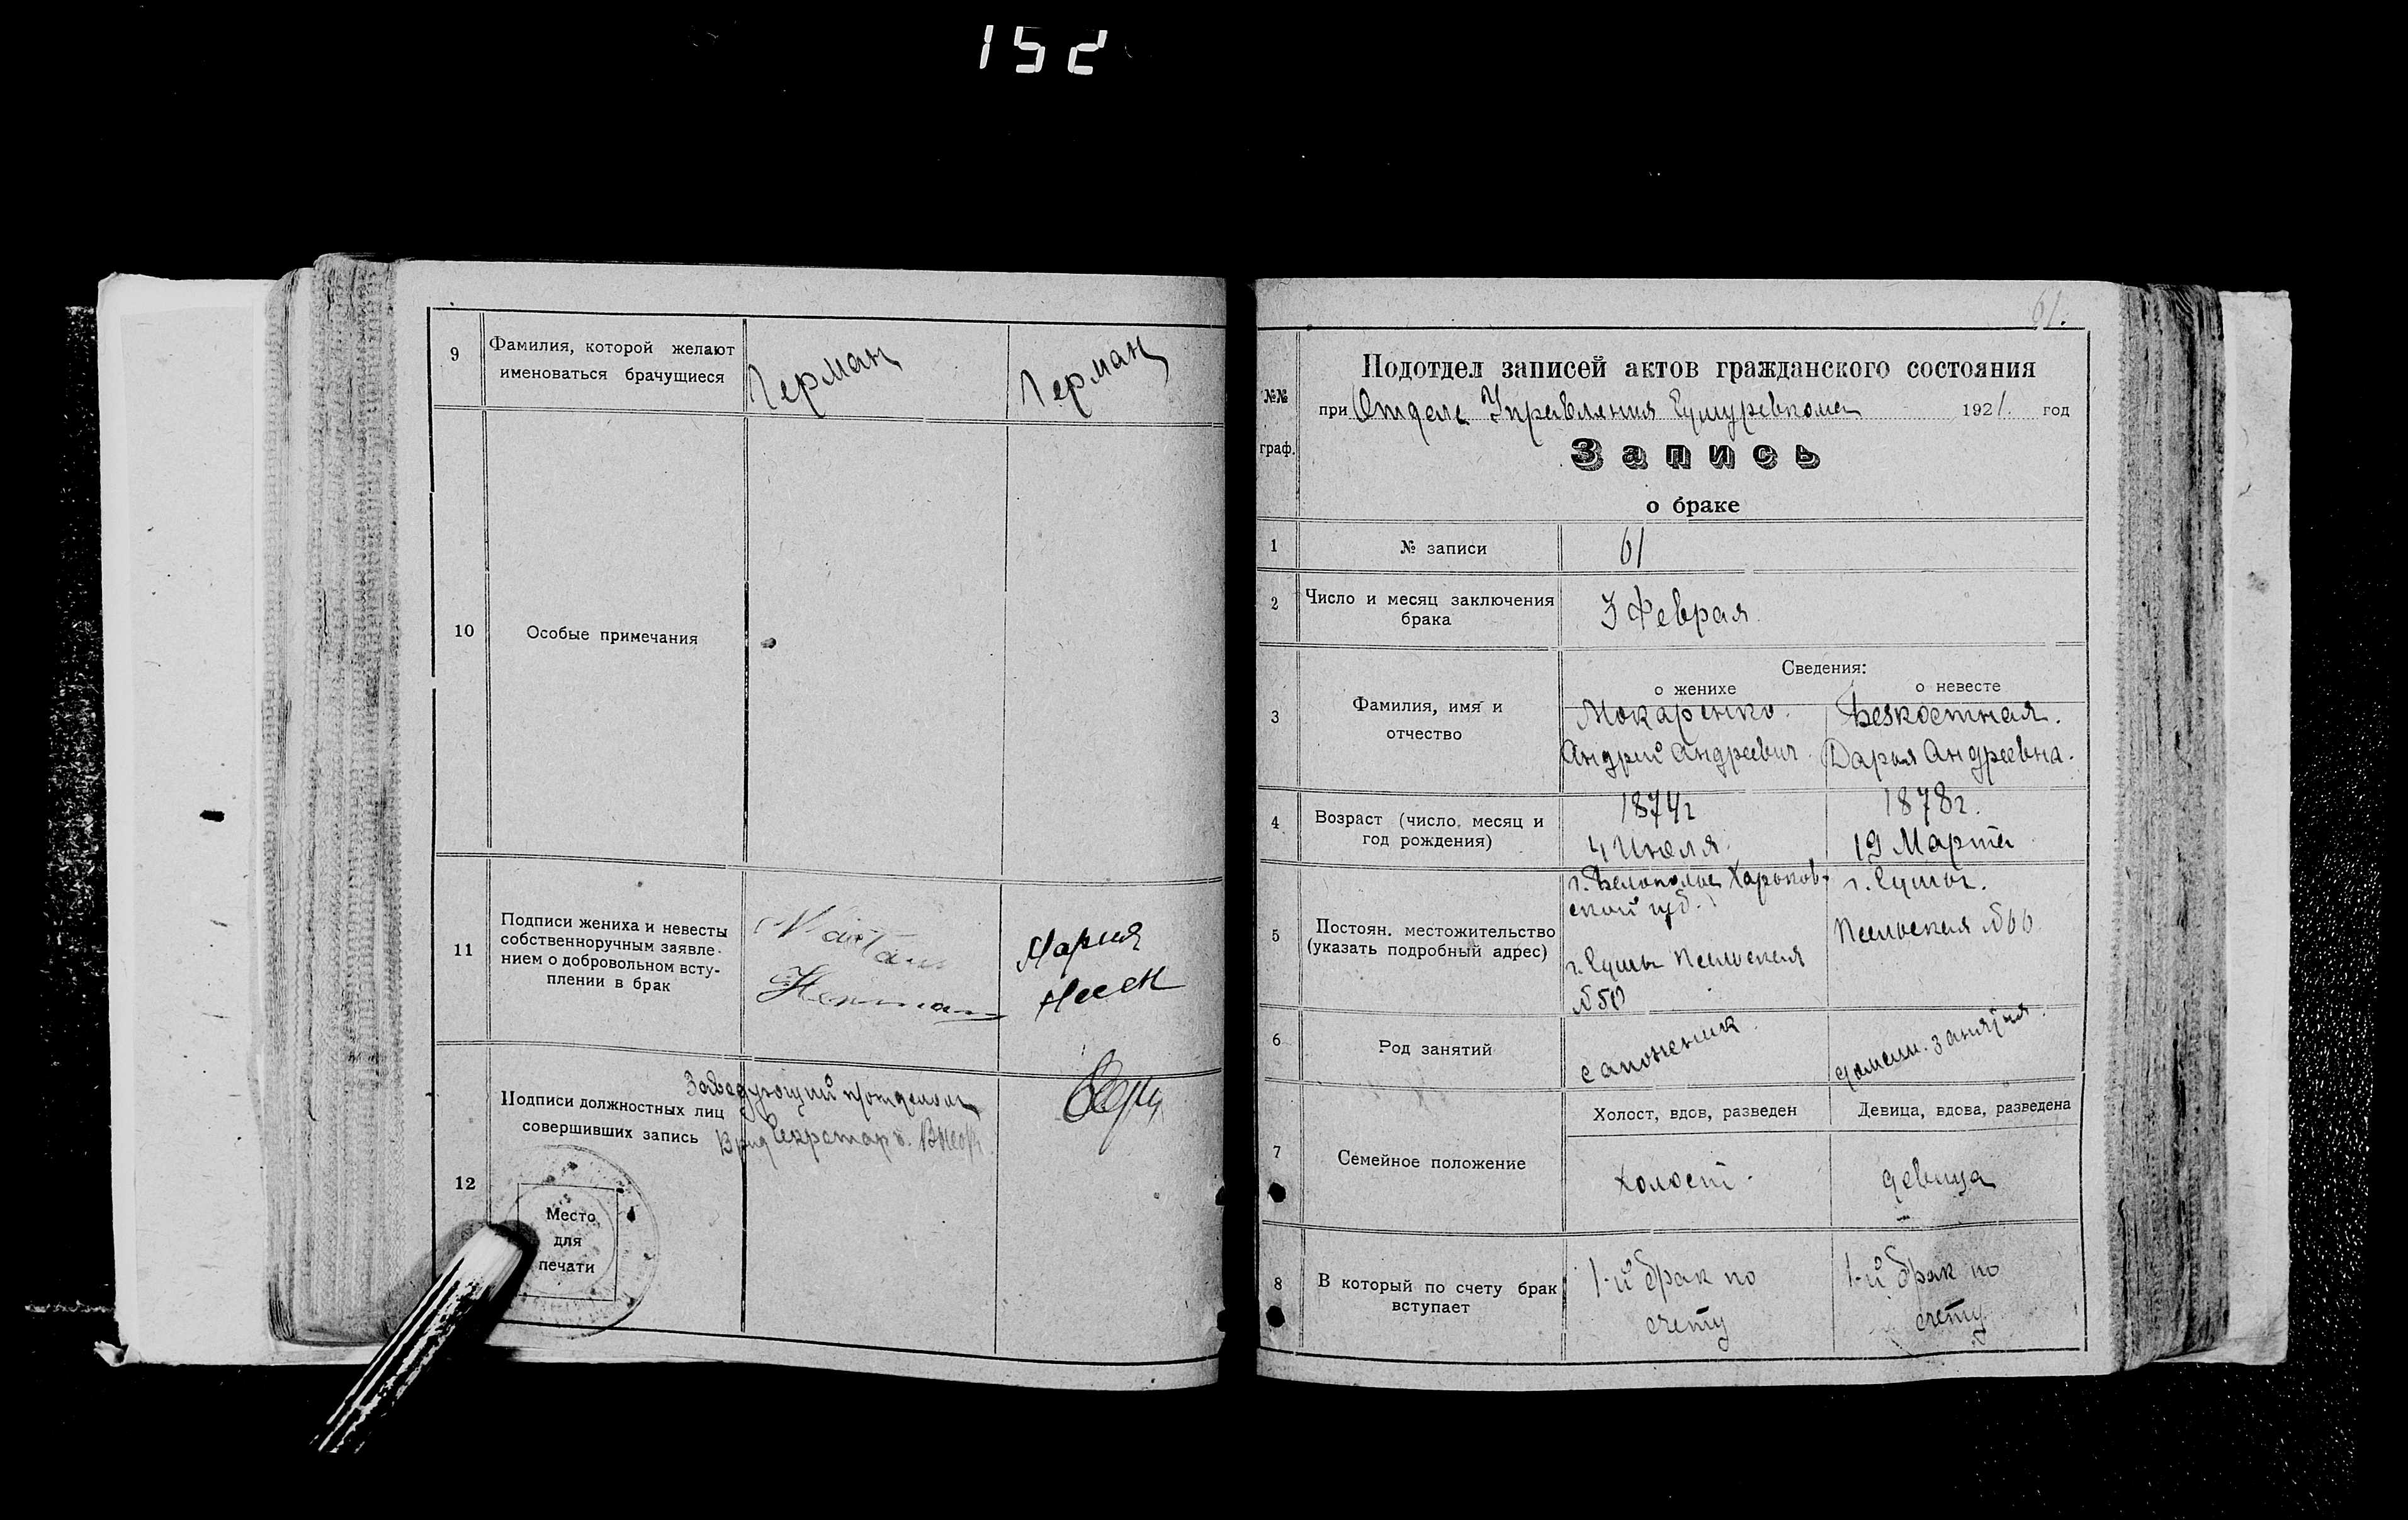 152
9
Фамилия, которой желают
именоваться брачущиеся
Герман
Герман
10
Особые примечания
11
Подписи жениха и невесты
собственноручным заявле-
нием о добровольном всту-
плении в брак
Herman
Мария
12
Подписи должностных лиц
совершивших запись
Заведующий п/отделом
Секретарь
Место
для
печати
61.
№№
граф.
Подотдел записей актов гражданского состояния
при Отделе Управления Сумуревкома 1921. год
Запись
о браке
1
№ записи
61
2
Число и месяц заключения
брака
3 Февраля
3
Фамилия, имя и
отчество
Сведения:
о женихе
о невесте
Мокаренко.
Андрей Андреевич
Безкостная.
Дарья Андреевна.
4
Возраст (число, месяц и
год рождения)
1874г
4 Июля
1878г.
19 Марта
5
Постоян. местожительство
(указать подробный адрес)
г. Белополье Харьков-
ской губ.
г. Сумы Псельская
№50
г. Сумы.
Псельская №60
6
Род занятий
сапожник
домашн. занятия.
7
Семейное положение
Холост, вдов, разведен
Девица, вдова, разведена
холост
девица
8
В который по счету брак
вступает
1-й брак по
счету
1-й брак по
счету